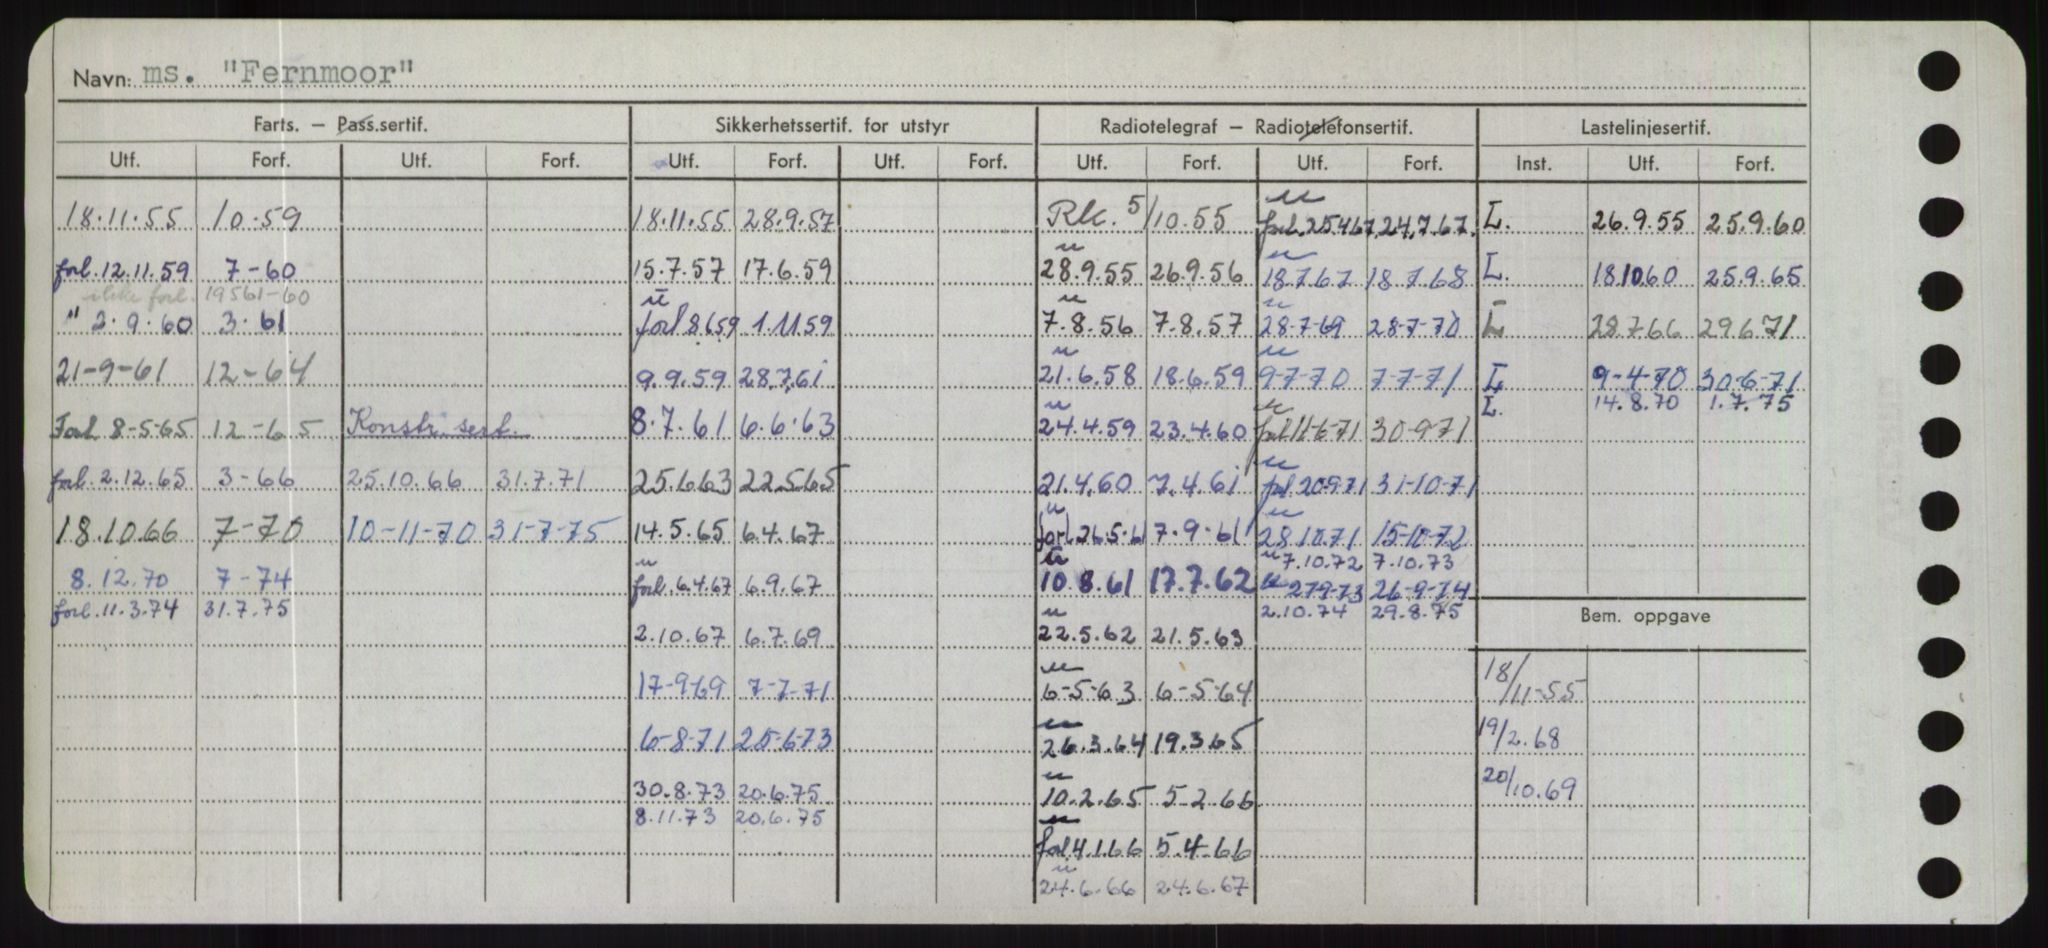 Navn: ms. "Fernmoor"
Farts. – Pass.sertif. Sikkerhetssertif. for utstyr Radiotelegraf – Radiotelefonsertif. Lastelinjesertif.
Utf. Forf. Utf. Forf. Utf. Forf. Utf. Forf. Utf. Forf. Utf. Forf. Inst. Utf. Forf.
18.11.55 10-59 18.11.55 28.9.57 Rk. 5/10.55 forl. 25467 24.7.67. L. 26.9.55 25.9.60
forl. 12.11.59 7-60 15.7.57 17.6.59 28.9.55 26.9.56 18.7.67 18.7.68 L. 18.10.60 25.9.65
ikke forl. 19561-60
" 2.9.60 3.61 forl 8659 1.11.59 7.8.56 7.8.57 28-7-69 28-7-70 L 28.7.66 29.6.71
21-9-61 12-64 9.9.59 28.7.61 21.6.58 18.6.59 9-7-70 7-7-71 L 9-4-70 30-6-71
L. 14.8.70 1.7.75
Forl 8-5-65 12-65 Konstr. sert. 8.7.61 6.6.63 24.4.59 23.4.60 forl 11-6-71 30-9-71
forl. 2.12.65 3-66 25.10.66 31.7.71 25.6.63 22.5.65 21.4.60 7.4.61 forl 20971 31-10-71
18.10.66 7-70 10-11-70 31-7-75 14.5.65 6.4.67 forl. 26.5.61 7.9.61 28.10.71 15-10-72
7.10.72 7.10.73
8.12.70 7-74 forl. 6.4.67 6.9.67 10.8.61 17.7.62 27973 26-9-74
forl. 11.3.74 31.7.75 2.10.74 29.8.75
Bem. oppgave
2.10.67 6.7.69 22.5.62 21.5.63
17-9-69 7-7-71 6-5-63 6-5-64 18/11-55
6-8-71 25-6-73 26.3.64 19.3.65 19/2.68
30.8.73 20.6.75 10.2.65 5-2.66 20/10.69
8.11.73 20.6.75
forl 4.1.66 5.4-66
24.6.66 24.6.67